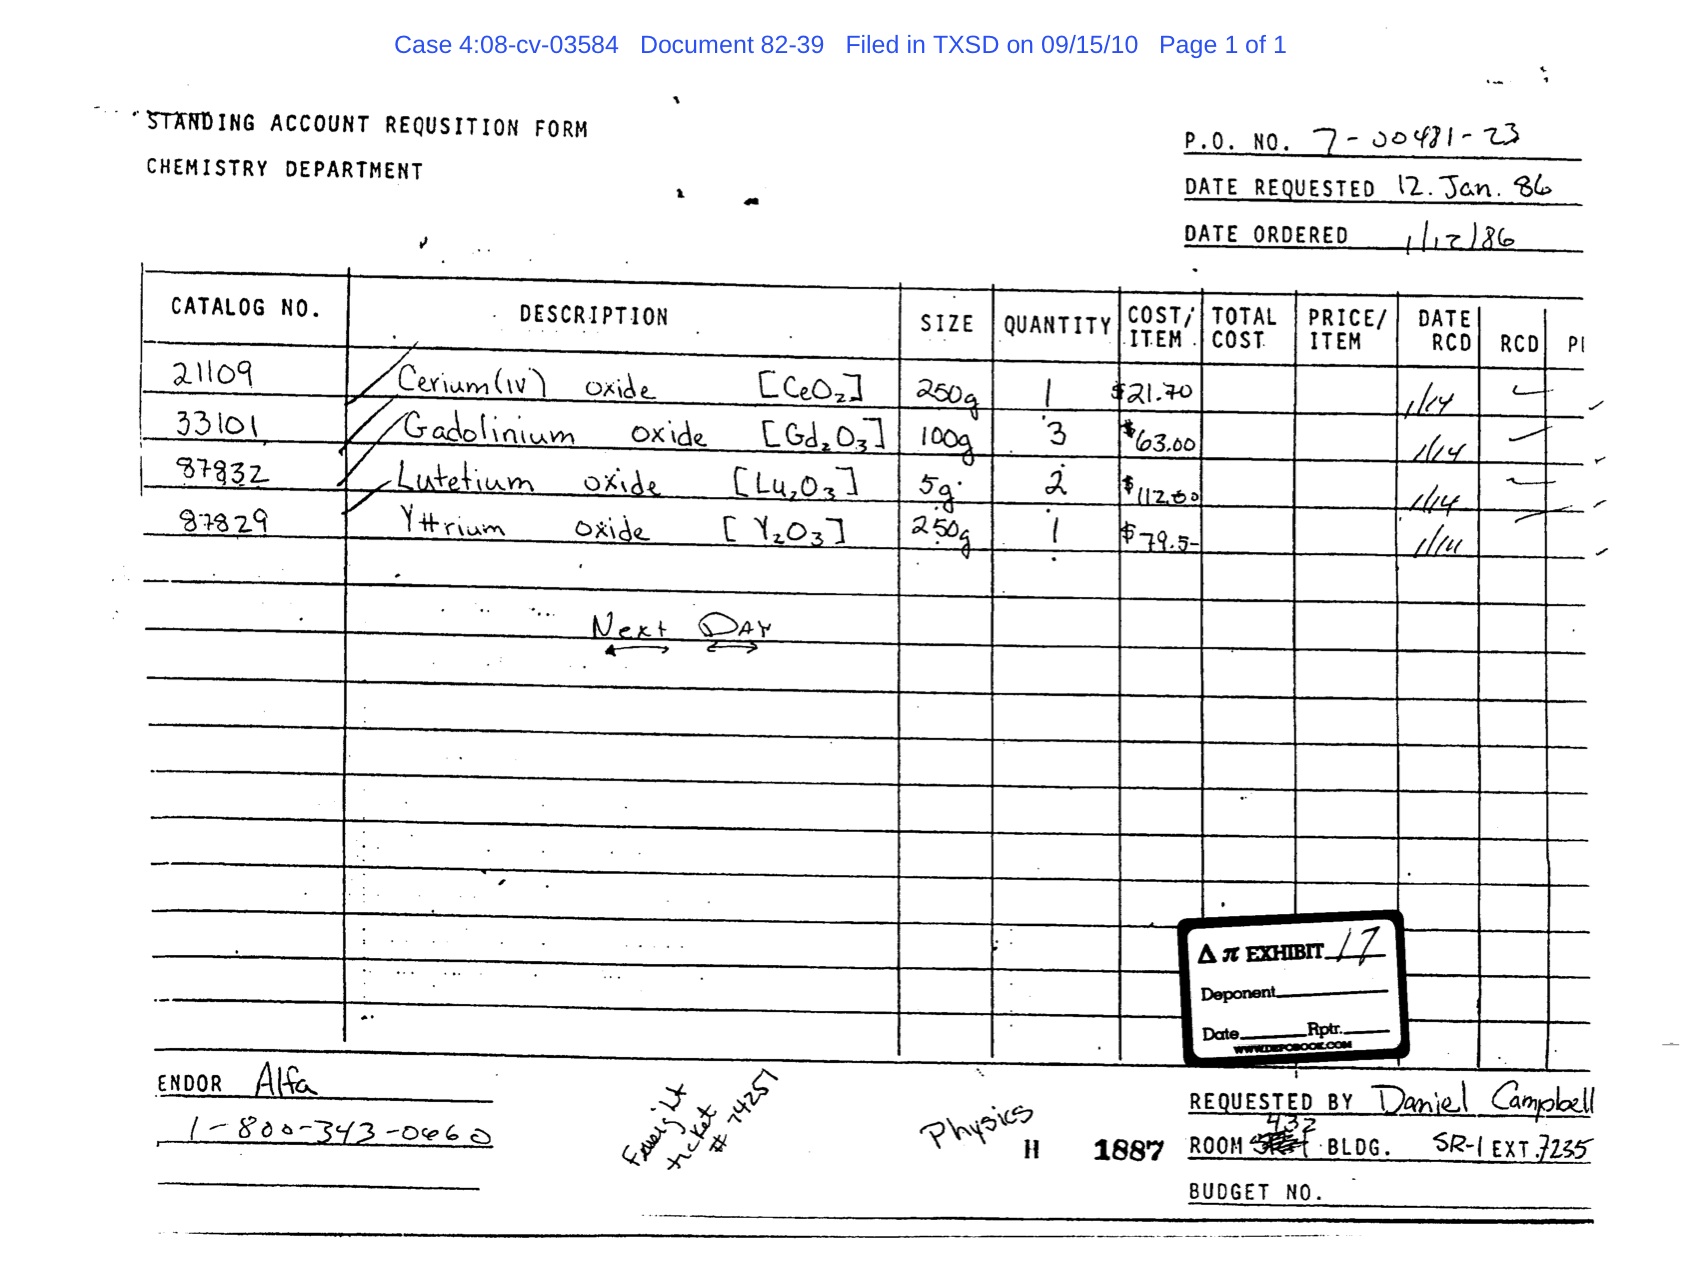 Case 4:08-cv-03584 Document 82-39 Filed in TXSD on 09/15/10 Page 1 of 1
STANDING ACCOUNT REQUSITION FORM
CHEMISTRY DEPARTMENT
P.O. NO. 7-00481-23
DATE REQUESTED 12. Jan. 86
DATE ORDERED 1/12/86
CATALOG NO. DESCRIPTION SIZE QUANTITY COST/ITEM TOTAL COST PRICE/ITEM DATE RCD RCD
21109 Cerium(IV) oxide [CeO₂] 250g 1 $21.70 1/14
33101 Gadolinium oxide [Gd₂O₃] 100g 3 $63.00 1/14
87832 Lutetium oxide [Lu₂O₃] 5g 2 $112.50 1/14
87829 Yttrium oxide [Y₂O₃] 250g 1 $79.5- 1/14
Next DAY
Δ π EXHIBIT 17
Deponent
Date Rptr.
WWW.DEPOBOOK.COM
ENDOR Alfa
1-800-343-0660
Freight ticket # 74251
Physics
H 1887
REQUESTED BY Daniel Campbell
ROOM 432 BLDG. SR-1 EXT. 7235
BUDGET NO.